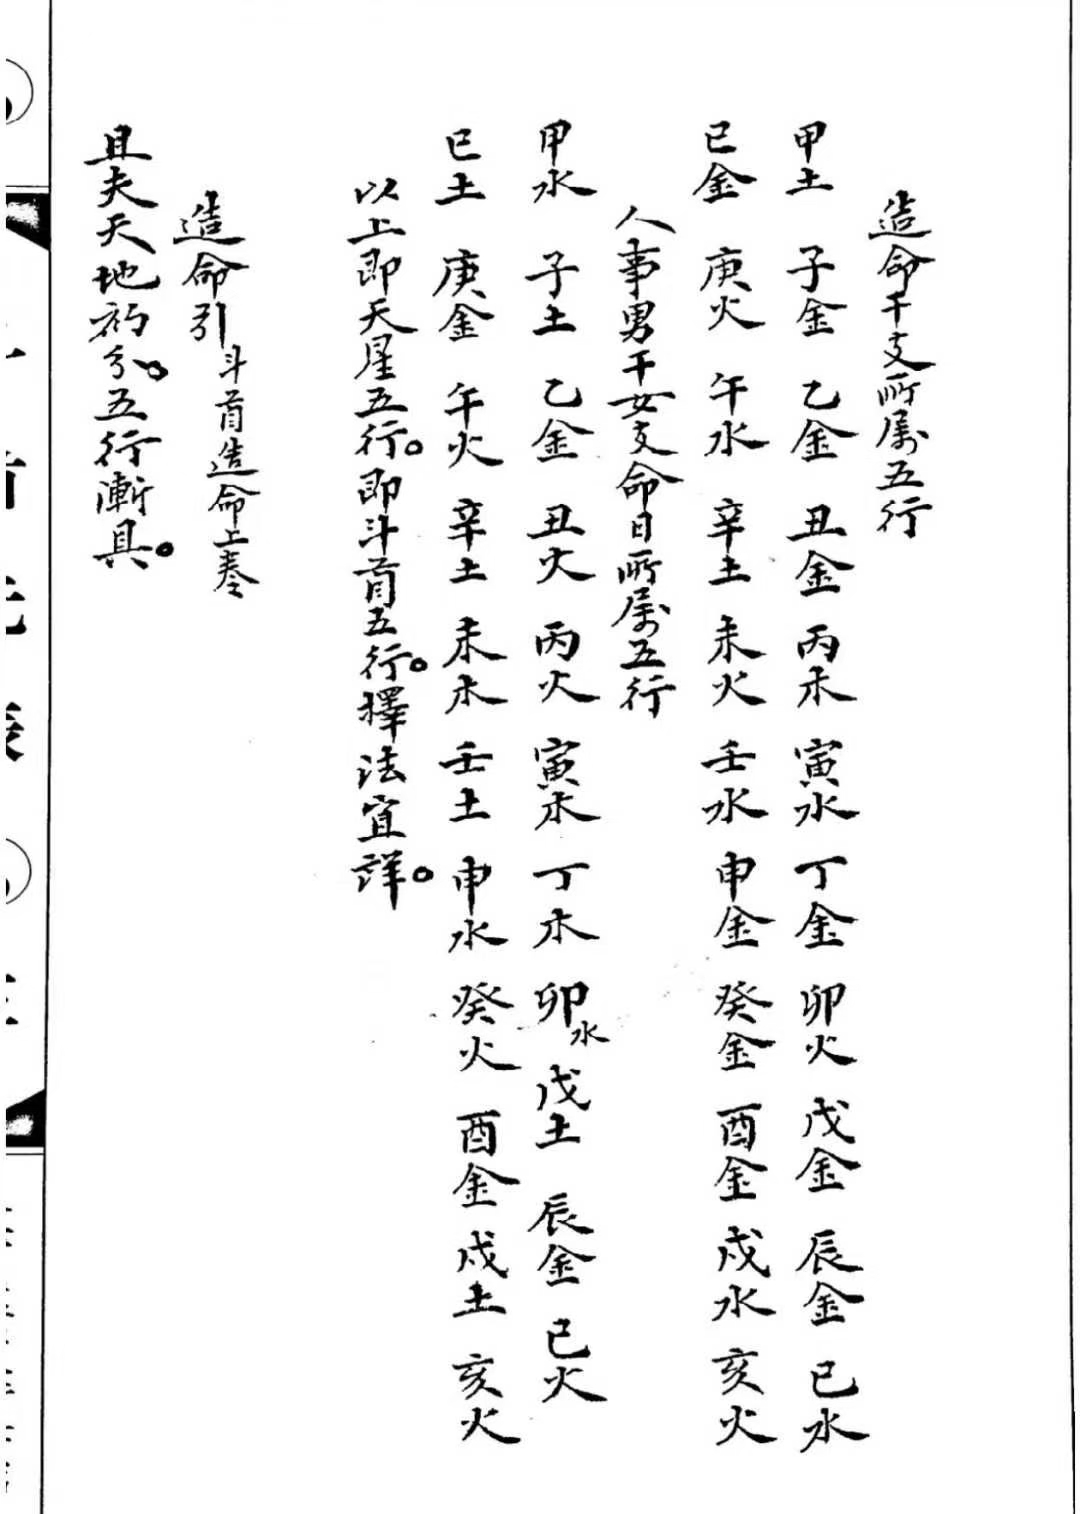 造命干支所属五行
甲土 子金 乙金 丑金 丙木 寅水 丁金 卯火 戊金 辰金 巳水
己金 庚火 午水 辛土 未火 壬水 申金 癸金 酉金 戌水 亥火
人事男干女支命日所属五行
甲水 子土 乙金 丑火 丙火 寅木 丁木 卯水 戊土 辰金 巳火
己土 庚金 午火 辛土 未木 壬土 申水 癸火 酉金 戌土 亥火
以上即天星五行。即斗首五行。擇法宜詳。
造命引 斗首造命上奏
且夫天地初分。五行漸具。